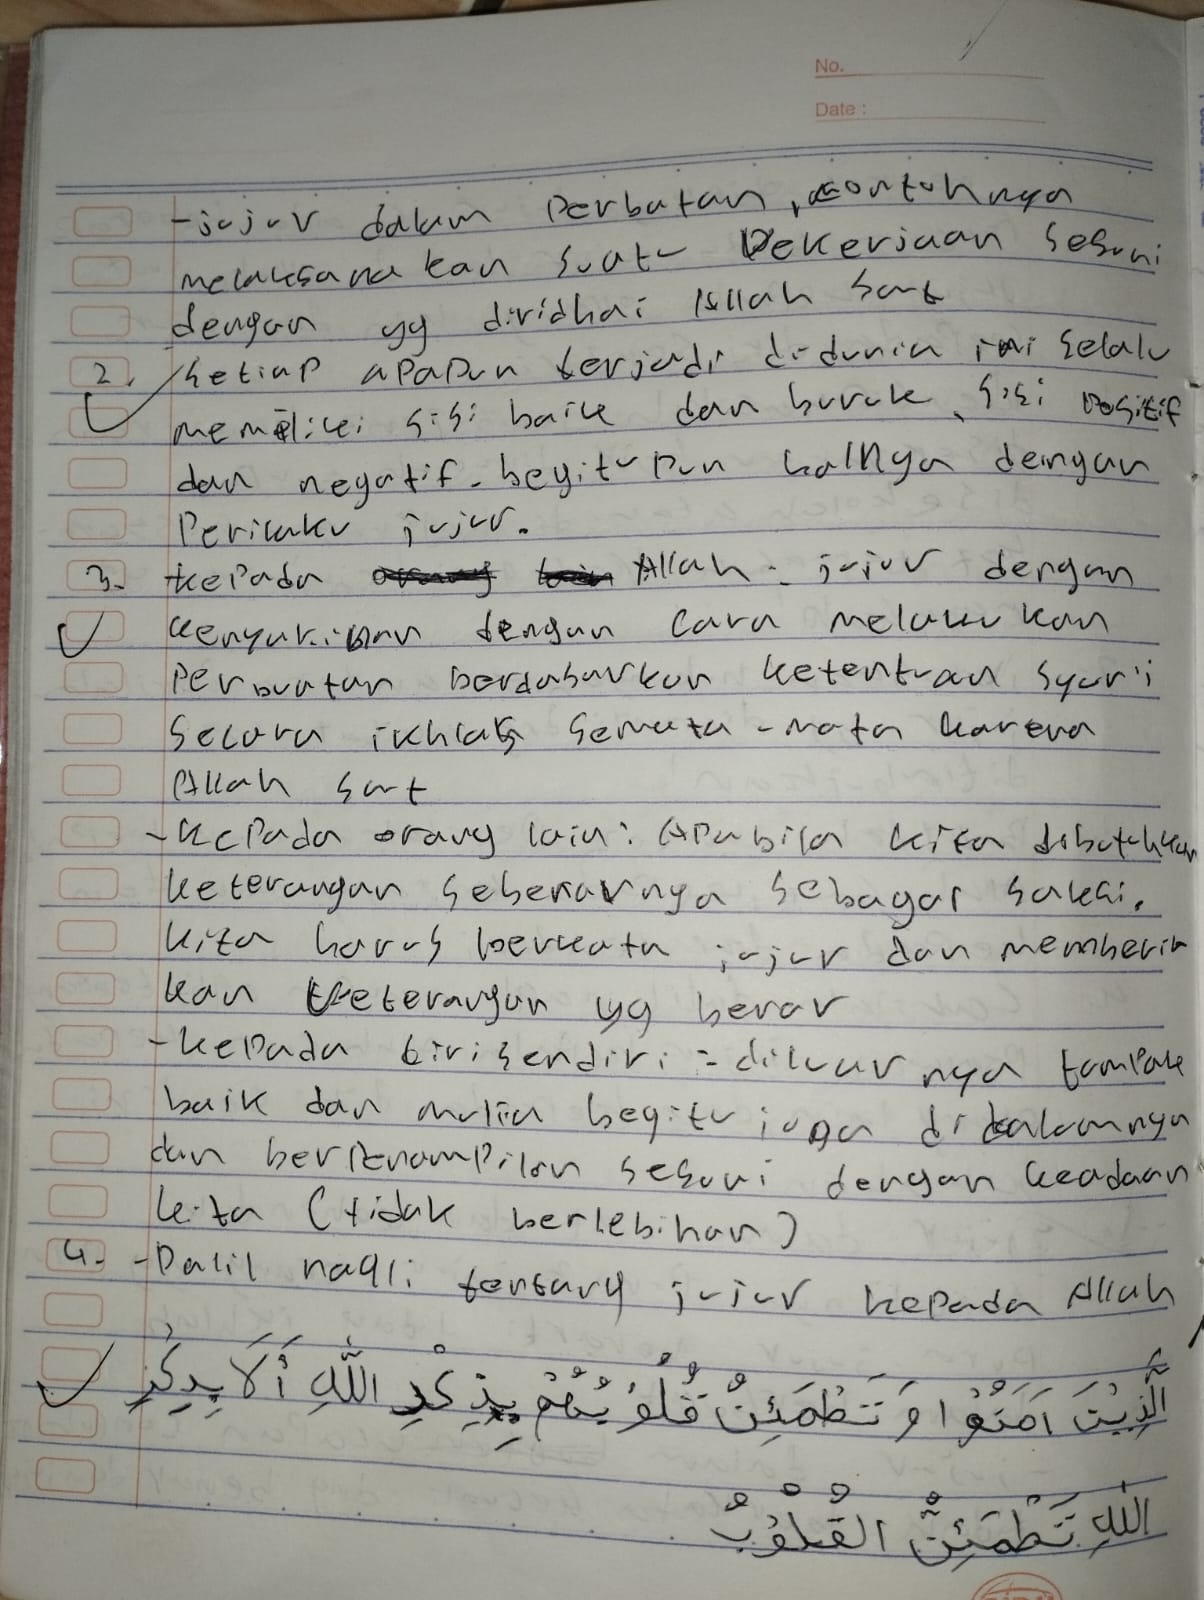 No.
Date :
- jujur dalam Perbuatan, contohnya
melaksanakan suatu Pekerjaan sesuai
dengan yg diridhai Allah Swt
2. Setiap apapun terjadi didunia ini selalu
memiliki sisi baik dan buruk, sisi Positif
dan negatif. begitu pun halnya dengan
Perilaku jujur.
3. kepada Allah : jujur dengan
keyakinan dengan cara melakukan
Perbuatan berdasarkan ketentuan syar'i
secara ikhlas semata - mata karena
Allah swt
- kepada orang lain : Apabila kita dibutuhkan
keterangan sebenarnya sebagai saksi.
kita harus berkata jujur dan memberi
kan keterangan yg benar
- kepada diri sendiri : diluar nya tampak
baik dan mulia begitu juga di dalamnya
dan berpenampilan sesuai dengan keadaan
kita (tidak berlebihan)
4. - Dalil naqli tentang jujur kepada Allah
الَّذِيْنَ اٰمَنُوْا وَتَطْمَئِنُّ قُلُوْبُهُمْ بِذِكْرِ اللّٰهِ اَلَا بِذِكْرِ
اللّٰهِ تَطْمَئِنُّ الْقُلُوْبُ